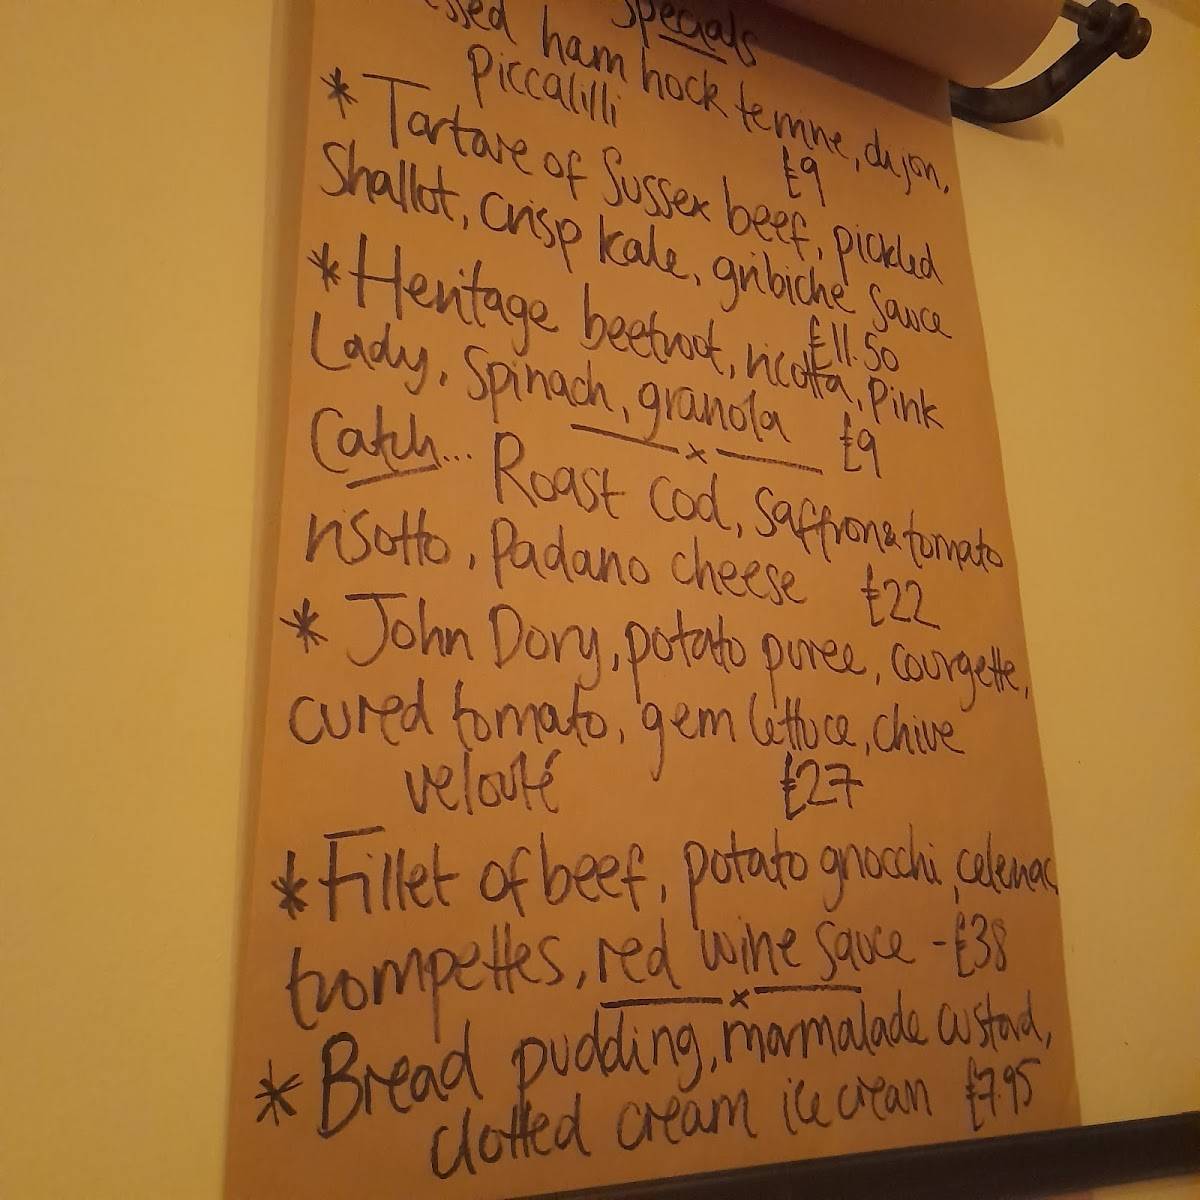 Specials
ssed ham hock terrine, dijon,
piccalilli £9
* Tartare of Sussex beef, pickled
Shallot, crisp kale, gribiche sauce
£11.50
* Heritage beetroot, ricotta, pink
Lady, spinach, granola £9
Catch... Roast cod, saffron & tomato
risotto, Padano cheese £22
* John Dory, potato puree, courgette,
cured tomato, gem lettuce, chive
velouté £27
* Fillet of beef, potato gnocchi, celeriac
trompettes, red wine sauce - £38
* Bread pudding, marmalade custard,
clotted cream ice cream £7.95